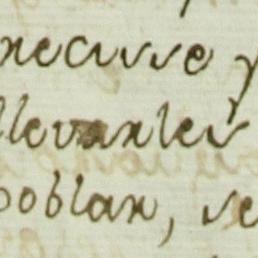 necisse y
llevarles
poblar, se